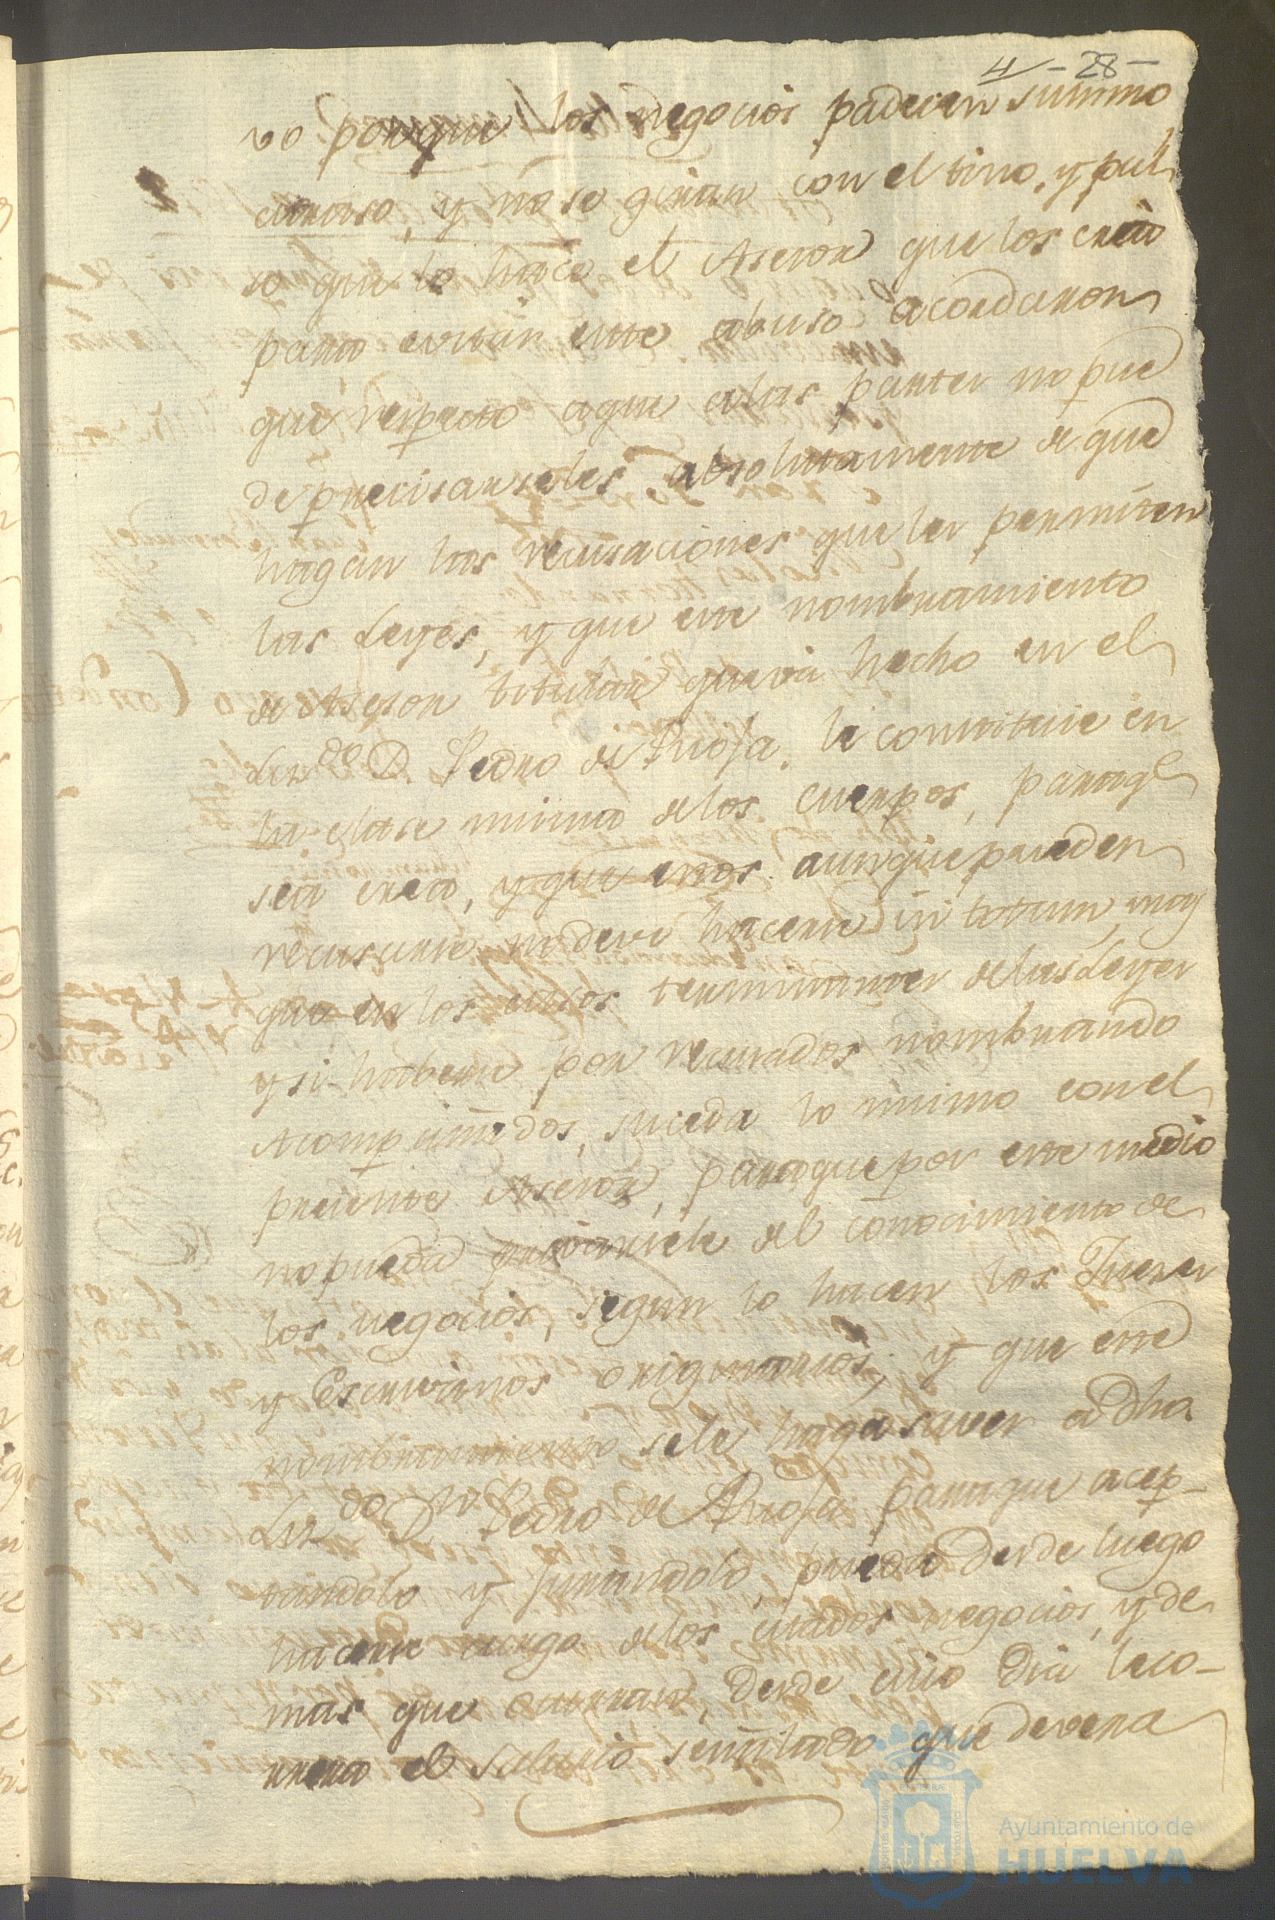 4 - 28 -
vo porque los negocios padecen summo
atraso, y no se giran con el tino, y pul
so que lo hace el Asesor que los creio
para evitar este abuso acordaron
que respecto aque alas partes no pue
de precisarseles absolutamente a que
hagan las recusaciones que les permiten
las Leyes, y que este nombramiento
de Asesor titular que va hecho en el
Lizdo Dn Pedro de Rioja, le constituie en
la clase misma delos cuerpos, paraqe
sea creado, y que estos aunque pueden
recusarse no deve hacerse in totum, mas
que en los casos terminantes delas Leyes
y si haberse por recusados nombrando
Acompañados, suceda lo mismo con el
presente Asesor, paraque por este medio
no pueda privarsele del conocimiento de
los negocios, segun lo hacen los Jueses
y Escrivanos originarios, y que este
nombramiento sele haga saver a dho
Lizdo Dn Pedro de Rioja para que acep-
tandolo y jurandolo, pueda desde luego
hacerse cargo delos citados negocios, y de
mas que ocurran, desde cuio dia leco-
rrera el salario señalado que devera
Ayuntamiento de
HUELVA